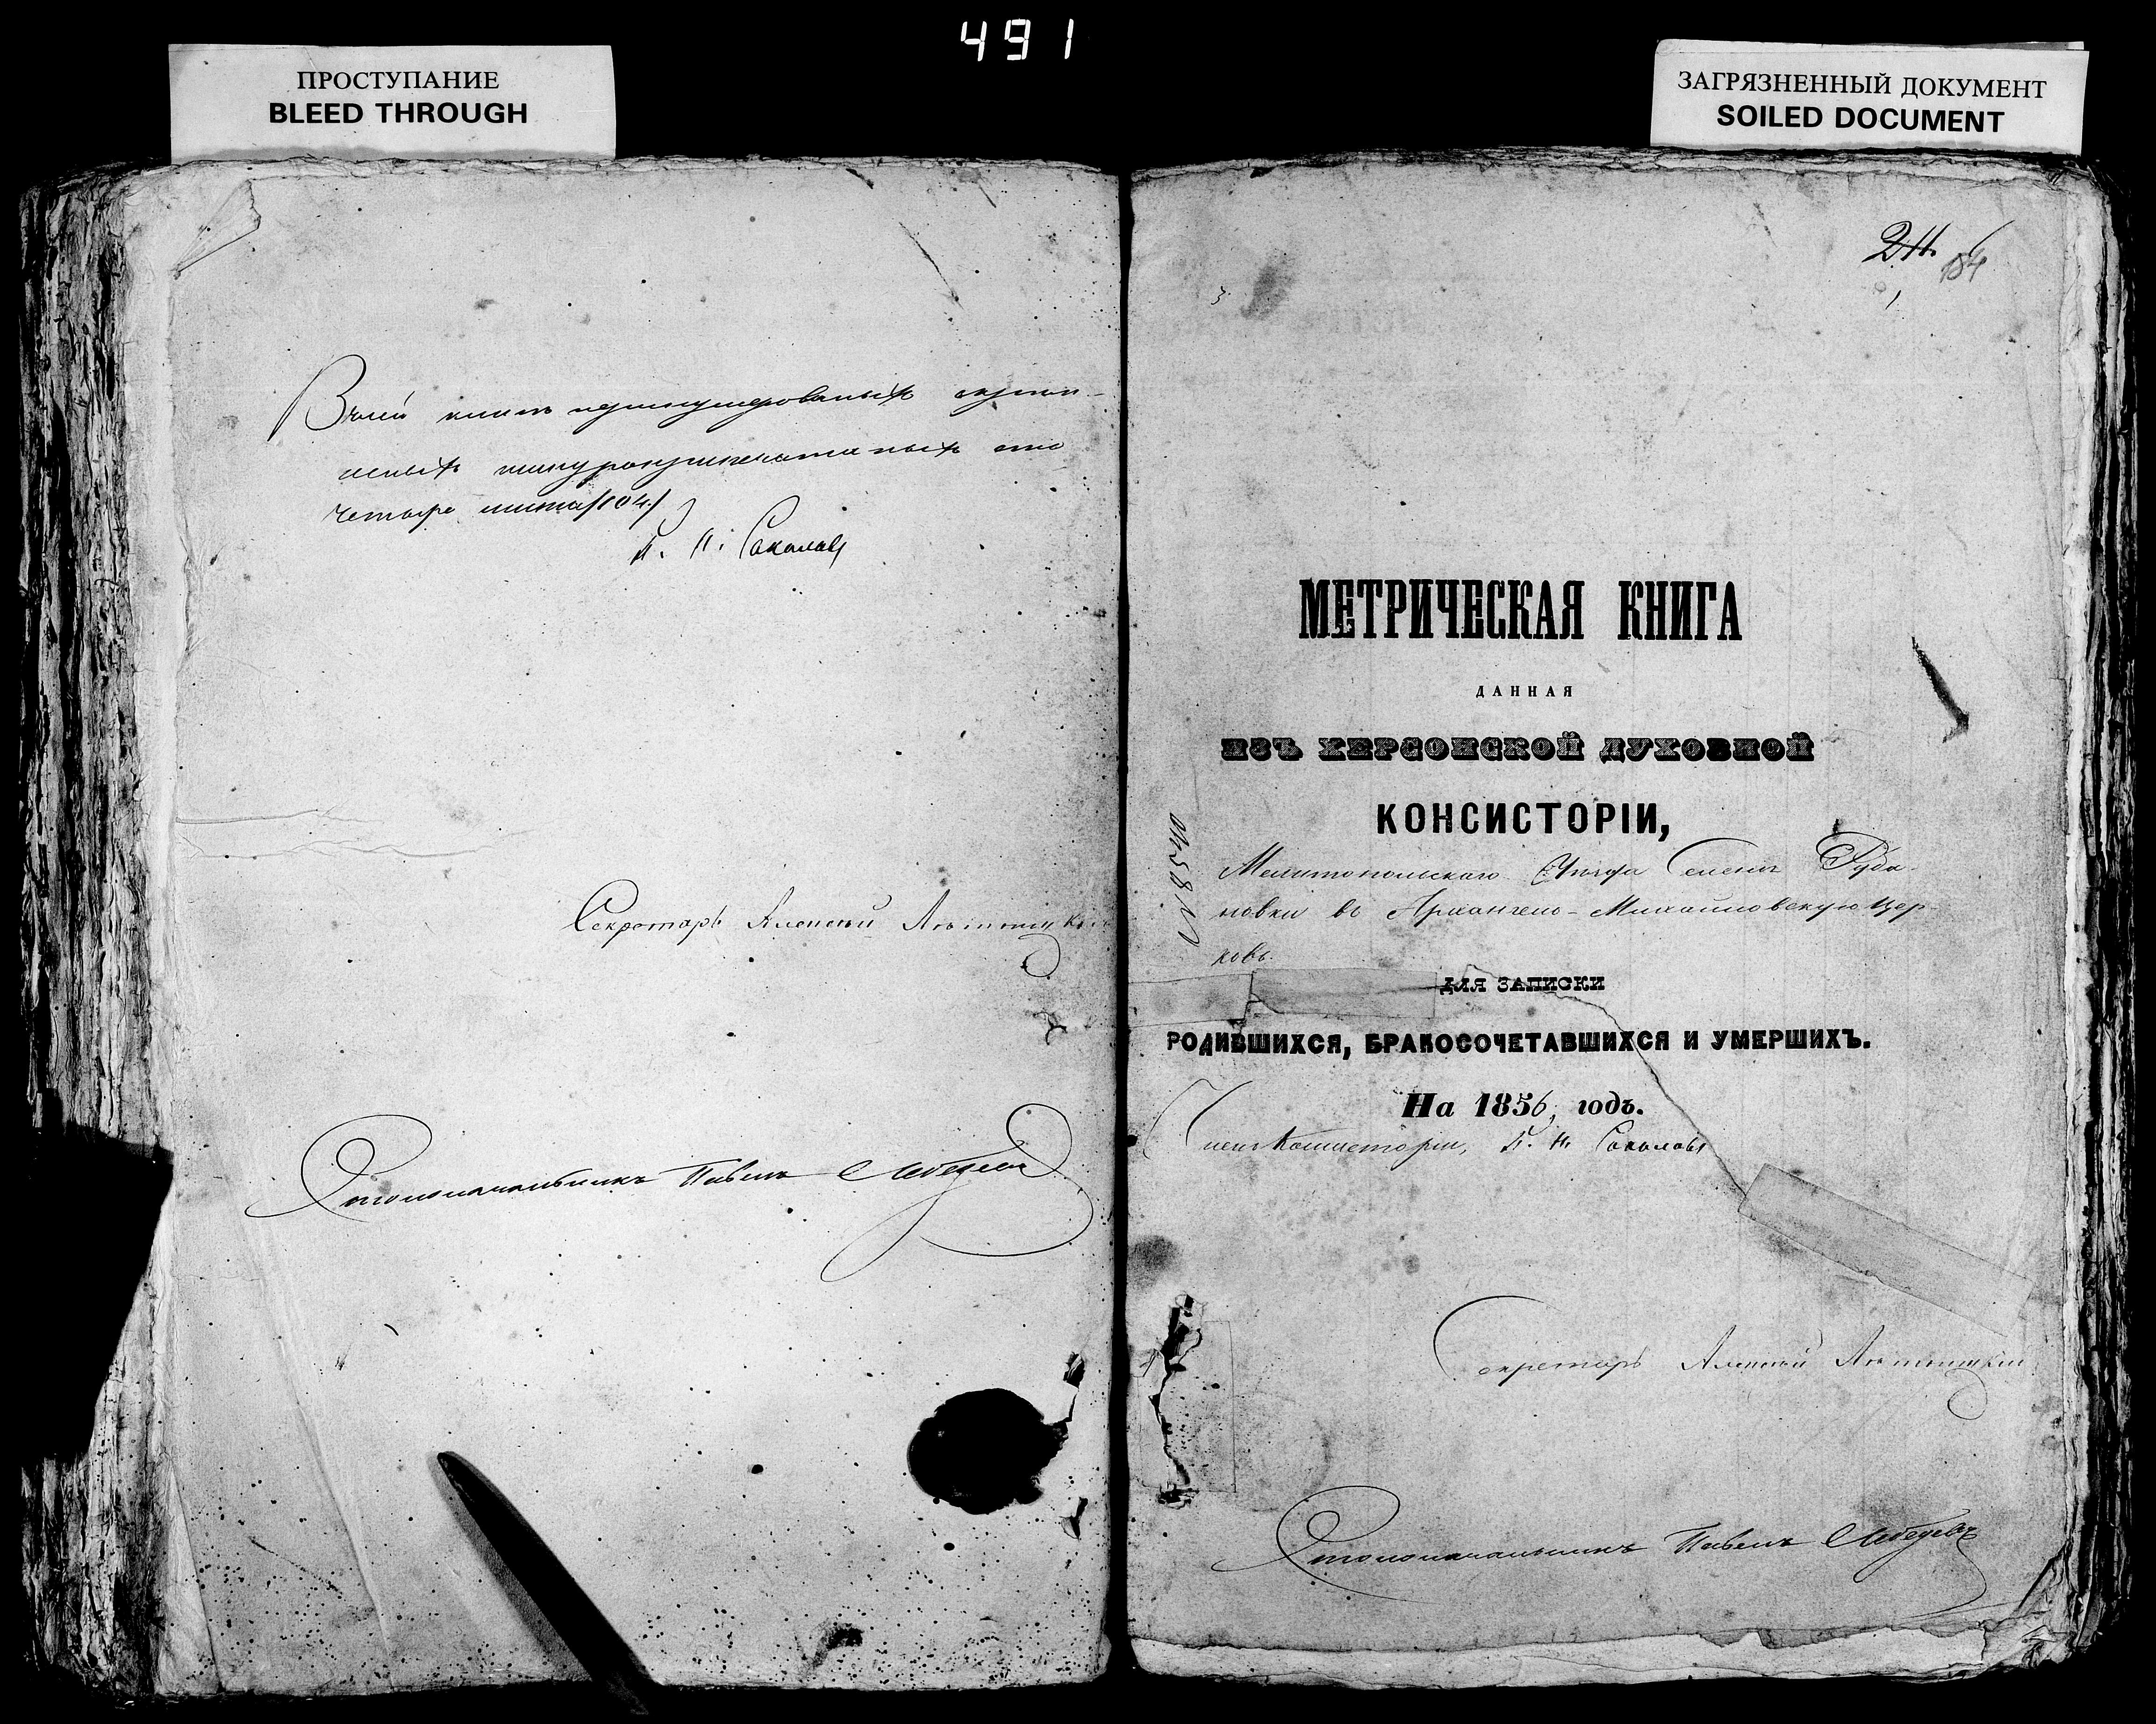 491
ПРОСТУПАНИЕ
BLEED THROUGH
ЗАГРЯЗНЕННЫЙ ДОКУМЕНТ
SOILED DOCUMENT
В сей книге нумерованыхъ
сто
четыре листа /104./
К. П. Соколовъ
Секретарь Алексей
Столоначальникъ Павелъ Лебедевъ
211.
184
МЕТРИЧЕСКАЯ КНИГА
ДАННАЯ
ИЗЪ ХЕРСОНСКОЙ ДУХОВНОЙ
КОНСИСТОРІИ,
№ 8540
Мелитопольскаго Уезда Селенія Руба-
новки въ Архангело-Михайловскую цер-
ковь.
ДЛЯ ЗАПИСКИ
РОДИВШИХСЯ, БРАКОСОЧЕТАВШИХСЯ И УМЕРШИХЪ.
На 1856, годъ.
Членъ Консисторіи, К. П. Соколовъ
Секретарь Алексей
Столоначальникъ Павелъ Лебедевъ